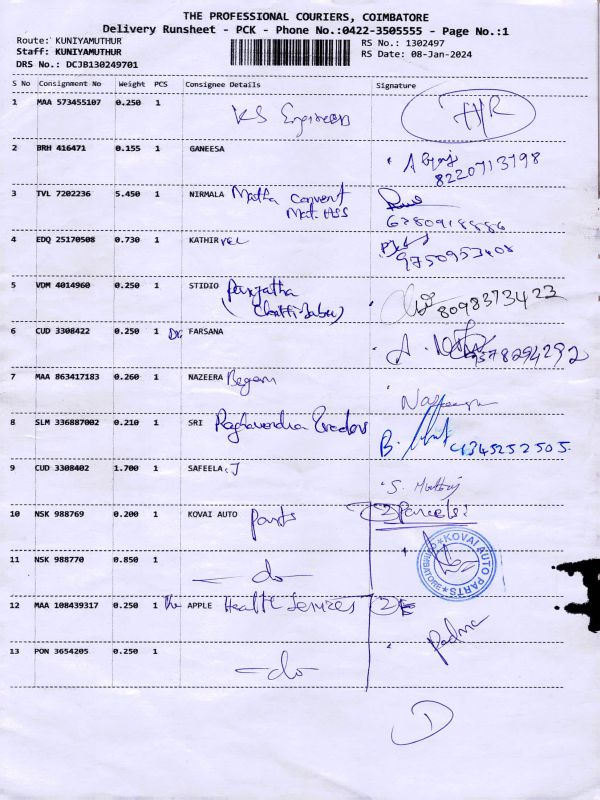 THE PROFESSIONAL COURIERS, COIMBATORE
Delivery Runsheet - PCK - Phone No.:0422-3505555 - Page No.:1
Route: KUNIYAMUTHUR RS No.: 1302497
Staff: KUNIYAMUTHUR RS Date: 08-Jan-2024
DRS No.: DCJB130249701
S No Consignment No Weight PCS Consignee Details Signature
1 MAA 573455107 0.250 1 KS Engineers
2 BRH 416471 0.155 1 GANEESA
8220713798
3 TVL 7202236 5.450 1 NIRMALA Matha Convent
Mat. HSS
6280918886
4 EDQ 25170508 0.730 1 KATHIR VEL
9750953408
5 VDM 4014960 0.250 1 STIDIO
8098373423
6 CUD 3308422 0.250 1 DR FARSANA
9578294292
7 MAA 863417183 0.260 1 NAZEERA Begam
8 SLM 336887002 0.210 1 SRI Raghavendra Traders
B. 9345252505.
9 CUD 3308402 1.700 1 SAFEELA. J
S.
10 NSK 988769 0.200 1 KOVAI AUTO Parts 2 Parcels:
11 NSK 988770 0.850 1 -do-
KOVAI AUTO PARTS
COIMBATORE
12 MAA 108439317 0.250 1 The APPLE Health Services 2
13 PON 3654205 0.250 1 -do- Padma